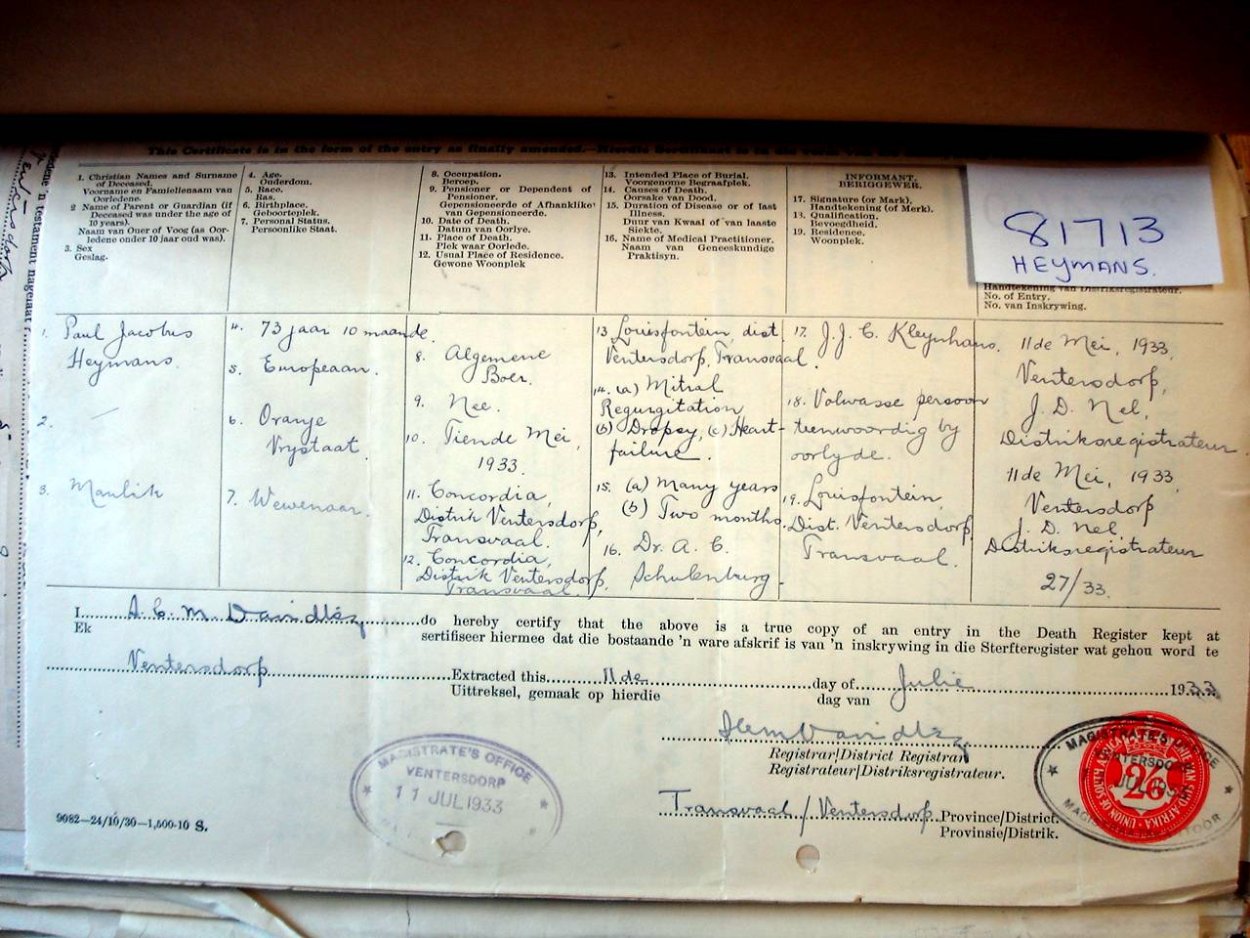 This Certificate is in the form of the entry as finally amended.
1. Christian Names and Surname
of Deceased.
Voorname en Familienaam van
Oorledene.
2 Name of Parent or Guardian (if
Deceased was under the age of
10 years).
Naam van Ouer of Voog (as Oor-
ledene onder 10 jaar oud was).
3. Sex
Geslag.
4. Age.
Ouderdom.
5. Race.
Ras.
6. Birthplace.
Geboorteplek.
7. Personal Status.
Persoonlike Staat.
8. Occupation.
Beroep.
9. Pensioner or Dependent of
Pensioner.
Gepensioneerde of Afhanklike
van Gepensioneerde.
10. Date of Death.
Datum van Oorlye.
11. Place of Death.
Plek waar Oorlede.
12. Usual Place of Residence.
Gewone Woonplek
13. Intended Place of Burial.
Voorgenome Begraafplek.
14. Causes of Death.
Oorsake van Dood.
15. Duration of Disease or of last
Illness.
Duur van Kwaal of van laaste
Siekte.
16. Name of Medical Practitioner.
Naam van Geneeskundige
Praktisyn.
INFORMANT.
BERIGGEWER.
17. Signature (or Mark).
Handtekening (of Merk).
18. Qualification.
Bevoegdheid.
19. Residence.
Woonplek.
81713
HEYMANS.
Handtekening van Distriksregistrateur.
No. of Entry.
No. van Inskrywing.
1. Paul Jacobus
Heymans.
2.
3. Manlik
4. 73 jaar 10 maande.
5. Europeaan.
6. Oranje
Vrystaat.
7. Wewenaar.
8. Algemene
Boer.
9. Nee.
10. Tiende Mei,
1933.
11. Concordia,
Distrik Ventersdorp,
Transvaal.
12. Concordia,
Distrik Ventersdorp.
Transvaal.
13 Louisfontein, dist
Ventersdorp, Transvaal.
14. (a) Mitral
Regurgitation
(b) Dropsy, (c) Heart-
failure.
15. (a) Many years
(b) Two months.
16. Dr. A. C.
Schulenburg.
17. J. J. C. Kleynhans.
18. Volwasse persoon
teenwoordig by
oorlyde.
19. Louisfontein,
Dist. Ventersdorp,
Transvaal.
11de Mei, 1933,
Ventersdorp,
J. D. Nel,
Distriksregistrateur.
11de Mei, 1933,
Ventersdorp
J. D. Nel
Distriksregistrateur
27/33.
I, A. C. M. Davidtsz do hereby certify that the above is a true copy of an entry in the Death Register kept at
Ek sertifiseer hiermee dat die bostaande 'n ware afskrif is van 'n inskrywing in die Sterfteregister wat gehou word te
Ventersdorp Extracted this 11de day of Julie 1933
Uittreksel, gemaak op hierdie dag van
Registrar/District Registrar
Registrateur/Distriksregistrateur.
Transvaal/Ventersdorp. Province/District.
Provinsie/Distrik.
MAGISTRATE'S OFFICE
VENTERSDORP
11 JUL 1933
MAGISTRATE'S OFFICE
VENTERSDORP
JUL 1933
UNION OF SOUTH AFRICA
2/6
9082—24/10/30—1,500-10 S.